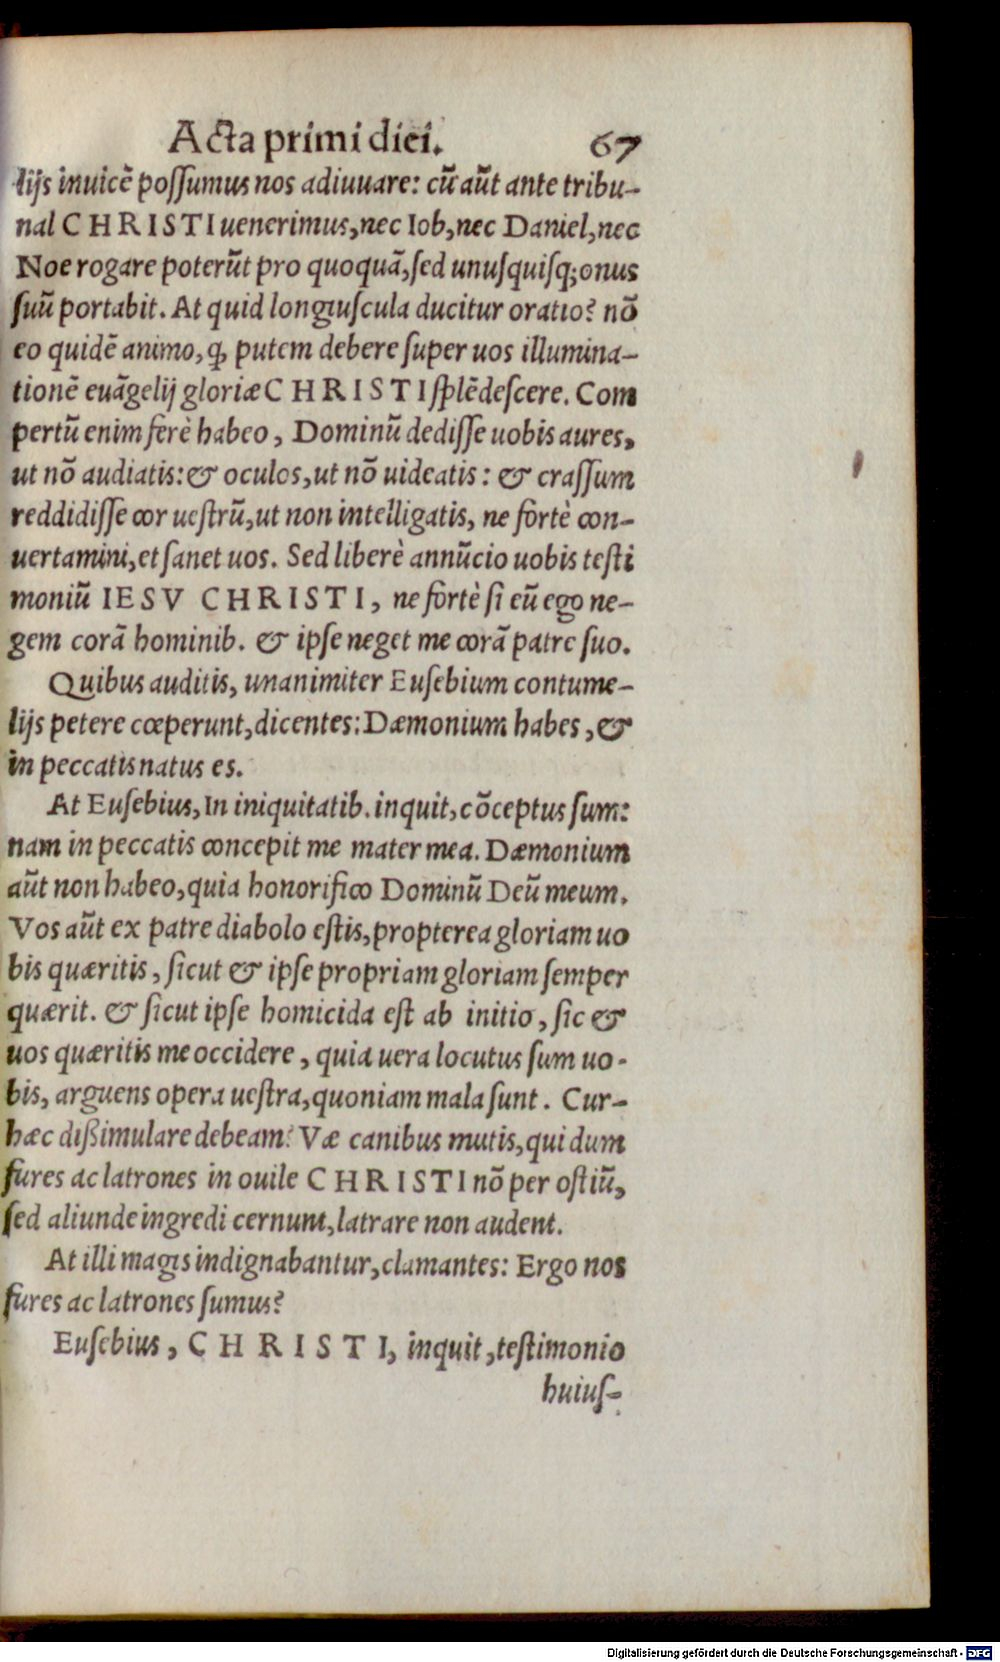 Acta primi diei. 67
lijs inuicē poſſumus nos adiuuare: cū aūt ante tribu-
nal CHRISTI uenerimus, nec Iob, nec Daniel, nec
Noe rogare poterūt pro quoquā, ſed unuſquiſq; onus
ſuū portabit. At quid longiuſcula ducitur oratio? nō
eo quidē animo, ꝙ putem debere ſuper uos illumina-
tionē euāgelij gloriæ CHRISTI ſplēdeſcere. Com
pertū enim ferè habeo, Dominū dediſſe uobis aures,
ut nō audiatis: & oculos, ut nō uideatis: & craſſum
reddidiſſe cor ueſtrū, ut non intelligatis, ne fortè con-
uertamini, et ſanet uos. Sed liberè annūcio uobis teſti
moniū IESV CHRISTI, ne fortè ſi eū ego ne-
gem corā hominib. & ipſe neget me corā patre ſuo.
Quibus auditis, unanimiter Euſebium contume-
lijs petere cœperunt, dicentes: Dæmonium habes, &
in peccatis natus es.
At Euſebius, In iniquitatib. inquit, cōceptus ſum:
nam in peccatis concepit me mater mea. Dæmonium
aūt non habeo, quia honorifico Dominū Deū meum.
Vos aūt ex patre diabolo eſtis, propterea gloriam uo
bis quæritis, ſicut & ipſe propriam gloriam ſemper
quærit. & ſicut ipſe homicida eſt ab initio, ſic &
uos quæritis me occidere, quia uera locutus ſum uo-
bis, arguens opera ueſtra, quoniam mala ſunt. Cur-
hæc dißimulare debeam? Væ canibus mutis, qui dum
fures ac latrones in ouile CHRISTI nō per oſtiū,
ſed aliunde ingredi cernunt, latrare non audent.
At illi magis indignabantur, clamantes: Ergo nos
fures ac latrones ſumus?
Euſebius, CHRISTI, inquit, teſtimonio
huiuſ-
Digitalisierung gefördert durch die Deutsche Forschungsgemeinschaft - DFG